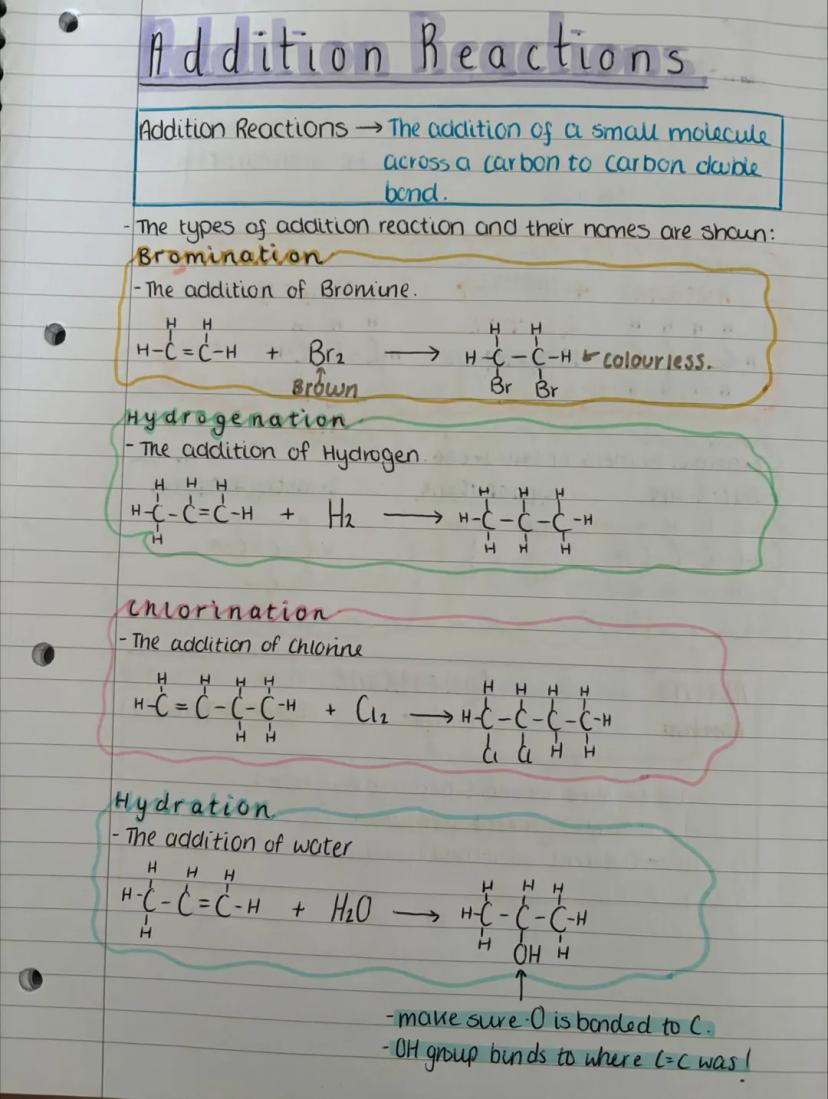 Addition Reactions
Addition Reactions → The addition of a small molecule
across a carbon to carbon double
bond.
- The types of addition reaction and their names are shown:
Bromination
- The addition of Bromine.
H H H H
H-C=C-H + Br₂ → H-C-C-H ← colourless.
Brown Br Br
Hydrogenation
- The addition of Hydrogen.
H H H H H H
H-C-C=C-H + H₂ → H-C-C-C-H
H H H H
Chlorination
- The addition of Chlorine
H H H H H H H H
H-C=C-C-C-H + Cl₂ → H-C-C-C-C-H
H H Cl Cl H H
Hydration
- The addition of water
H H H H H H
H-C-C=C-H + H₂O → H-C-C-C-H
H H OH H
- make sure -O is bonded to C.
- OH group binds to where C=C was!